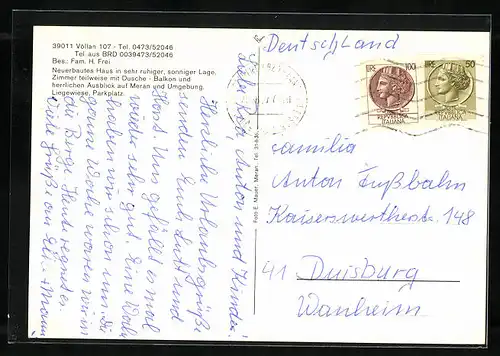 39011 Völlan 107 - Tel. 0473/52046
Tel aus BRD 0039473/52046
Bes.: Fam. H. Frei
Neuerbautes Haus in sehr ruhiger, sonniger Lage.
Zimmer teilweise mit Dusche - Balkon und
herrlichen Ausblick auf Meran und Umgebung.
Liegewiese, Parkplatz.
Anton und Kinder!
Herzliche Urlaubsgrüße
senden Euch Lutt und
Horst. Uns gefällt es mal
wieder sehr gut. Eine Woche
haben wir schon um. Die
ganze Woche waren wir in
die Berge. Heute regnet es.
Viele Grüße
Foto E. Mauer, Meran, Tel.
Deutschland
LIRE 100
REPUBBLICA
ITALIANA
LIRE 50
REPUBBLICA
ITALIANA
Familia
Anton Fußbahn
Kaiserswertherstr. 148
41 Duisburg
Wanheim